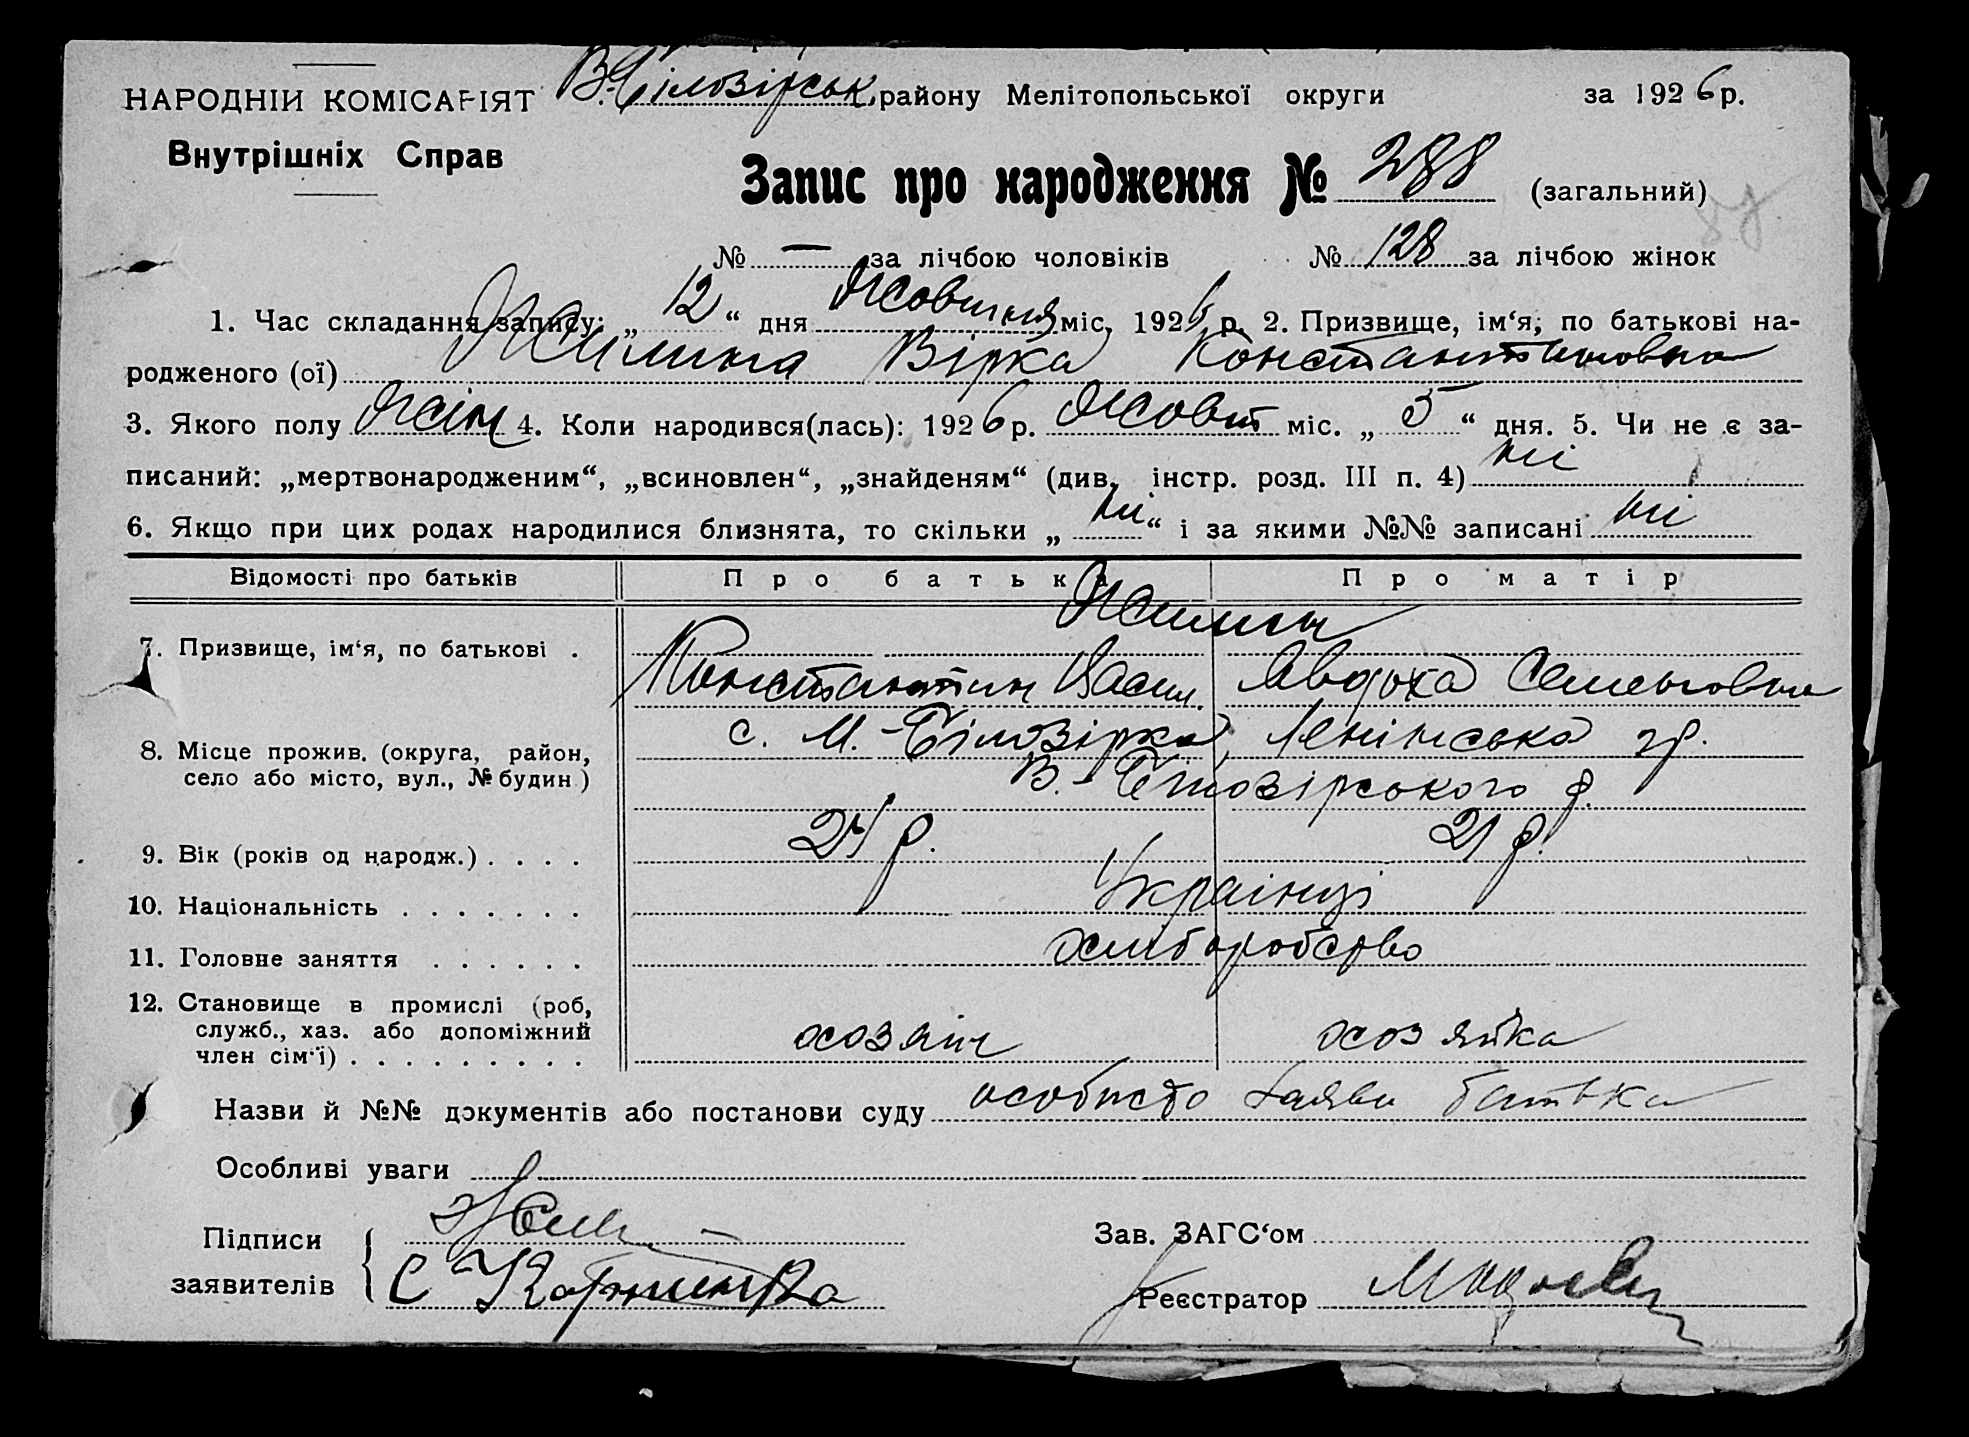 НАРОДНІЙ КОМІСАРІЯТ В.-Білозірськ. району Мелітопольської округи за 1926 р.
Внутрішніх Справ
Запис про народження № 288 (загальний)
№ — за лічбою чоловіків № 128 за лічбою жінок
1. Час складання запису: „ 12 “ дня Жовтня міс. 1926 р. 2. Призвище, ім‘я, по батькові на-
родженого (ої) Жилина Вірка Константиновна
3. Якого полу жін 4. Коли народився(лась): 1926 р. Жовт міс. „ 5 “ дня. 5. Чи не є за-
писаний: „мертвонародженим“, „всиновлен“, „знайденям“ (див. інстр. розд. III п. 4) ні
6. Якщо при цих родах народилися близнята, то скільки „ ні “ і за якими №№ записані ні
Відомості про батьків Про батька Про матір
Жилины
7. Призвище, ім‘я, по батькові .
Константин Васил. Авдоха Семеновна
8. Місце прожив. (округа, район, село або місто, вул., № будин)
с. М.-Білозірка, Ленінська
В.-Білозірського р.
9. Вік (років од народж.) . . . . 24 р. 21 р.
10. Національність . . . . . . . Українці
11. Головне заняття . . . . . . хліборобство
12. Становище в промислі (роб,
служб., хаз. або допоміжний
член сім‘ї) . . . . . . . . . хозяін хозяйка
Назви й №№ документів або постанови суду особисто заява батька
Особливі уваги
Підписи Зав. ЗАГС‘ом
заявителів { Реєстратор